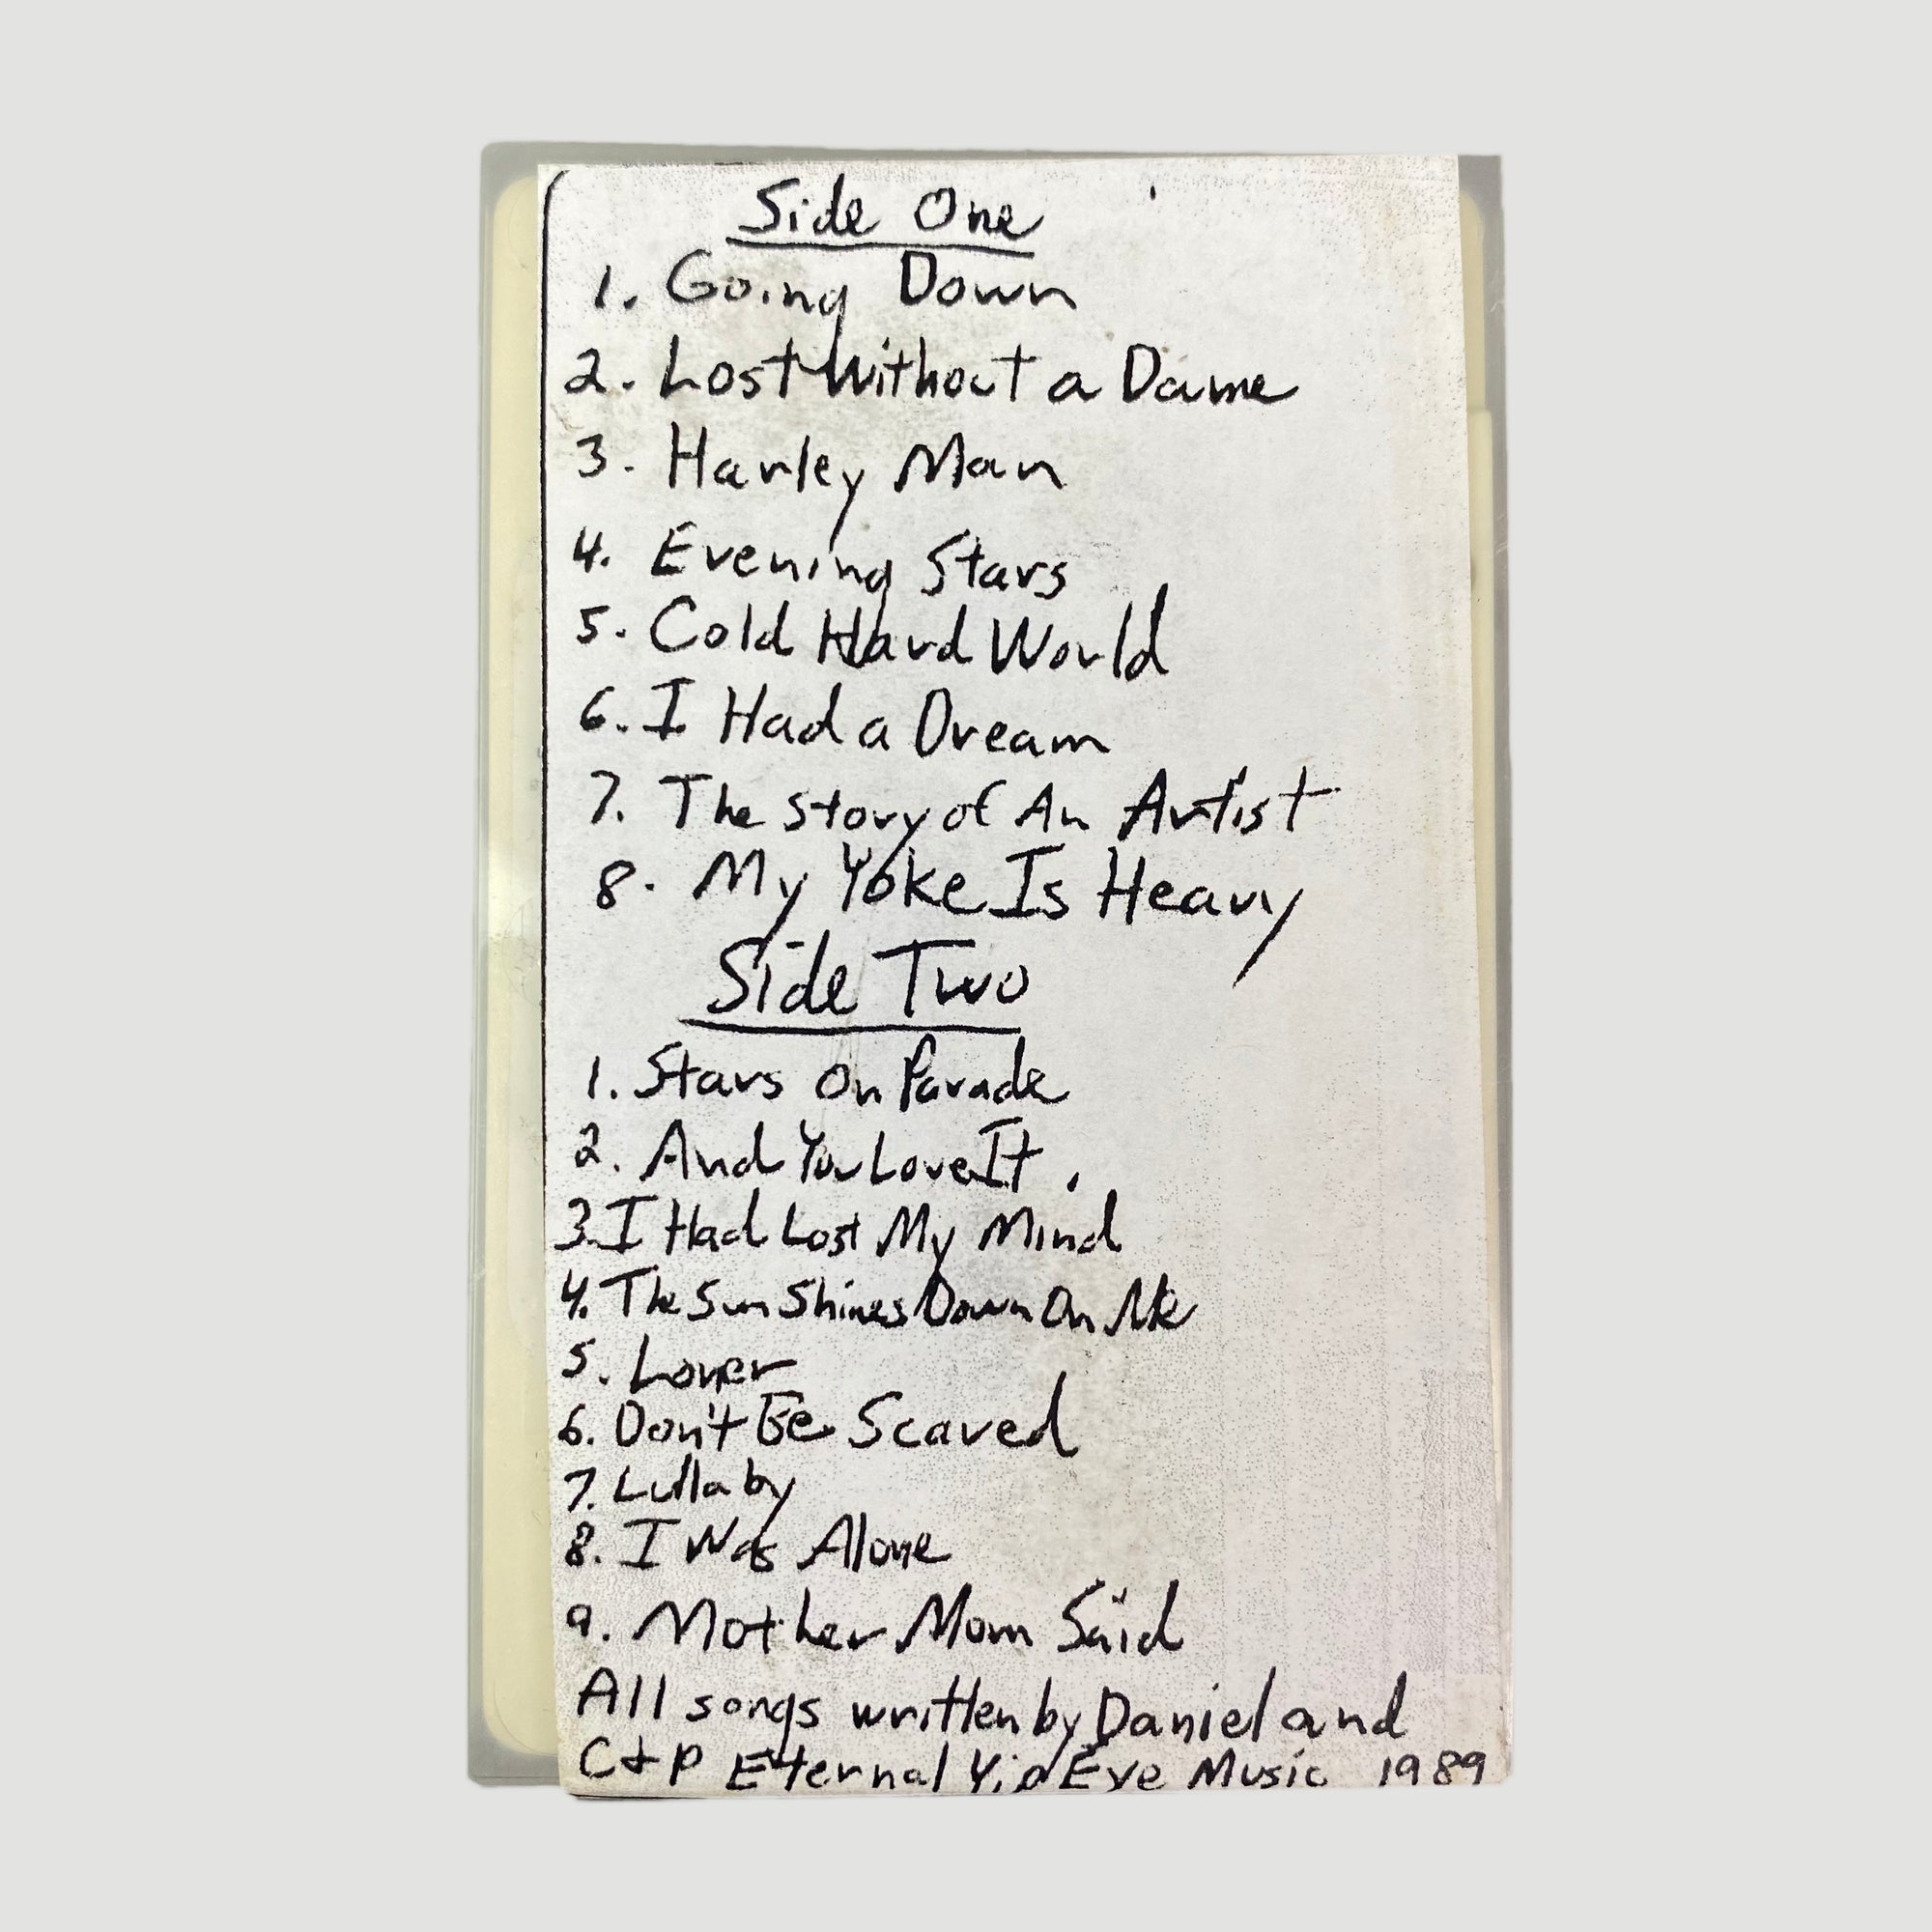 Side One
1. Going Down
2. Lost Without a Dame
3. Harley Man
4. Evening Stars
5. Cold Hard World
6. I Had a Dream
7. The Story of An Artist
8. My Yoke Is Heavy
Side Two
1. Stars On Parade
2. And You Love It.
3. I Had Lost My Mind
4. The Sun Shines Down On Me
5. Lover
6. Don't Be Scared
7. Lullaby
8. I Was Alone
9. Mother Mom Said
All songs written by Daniel and
C & P Eternal Yip Eye Music 1989